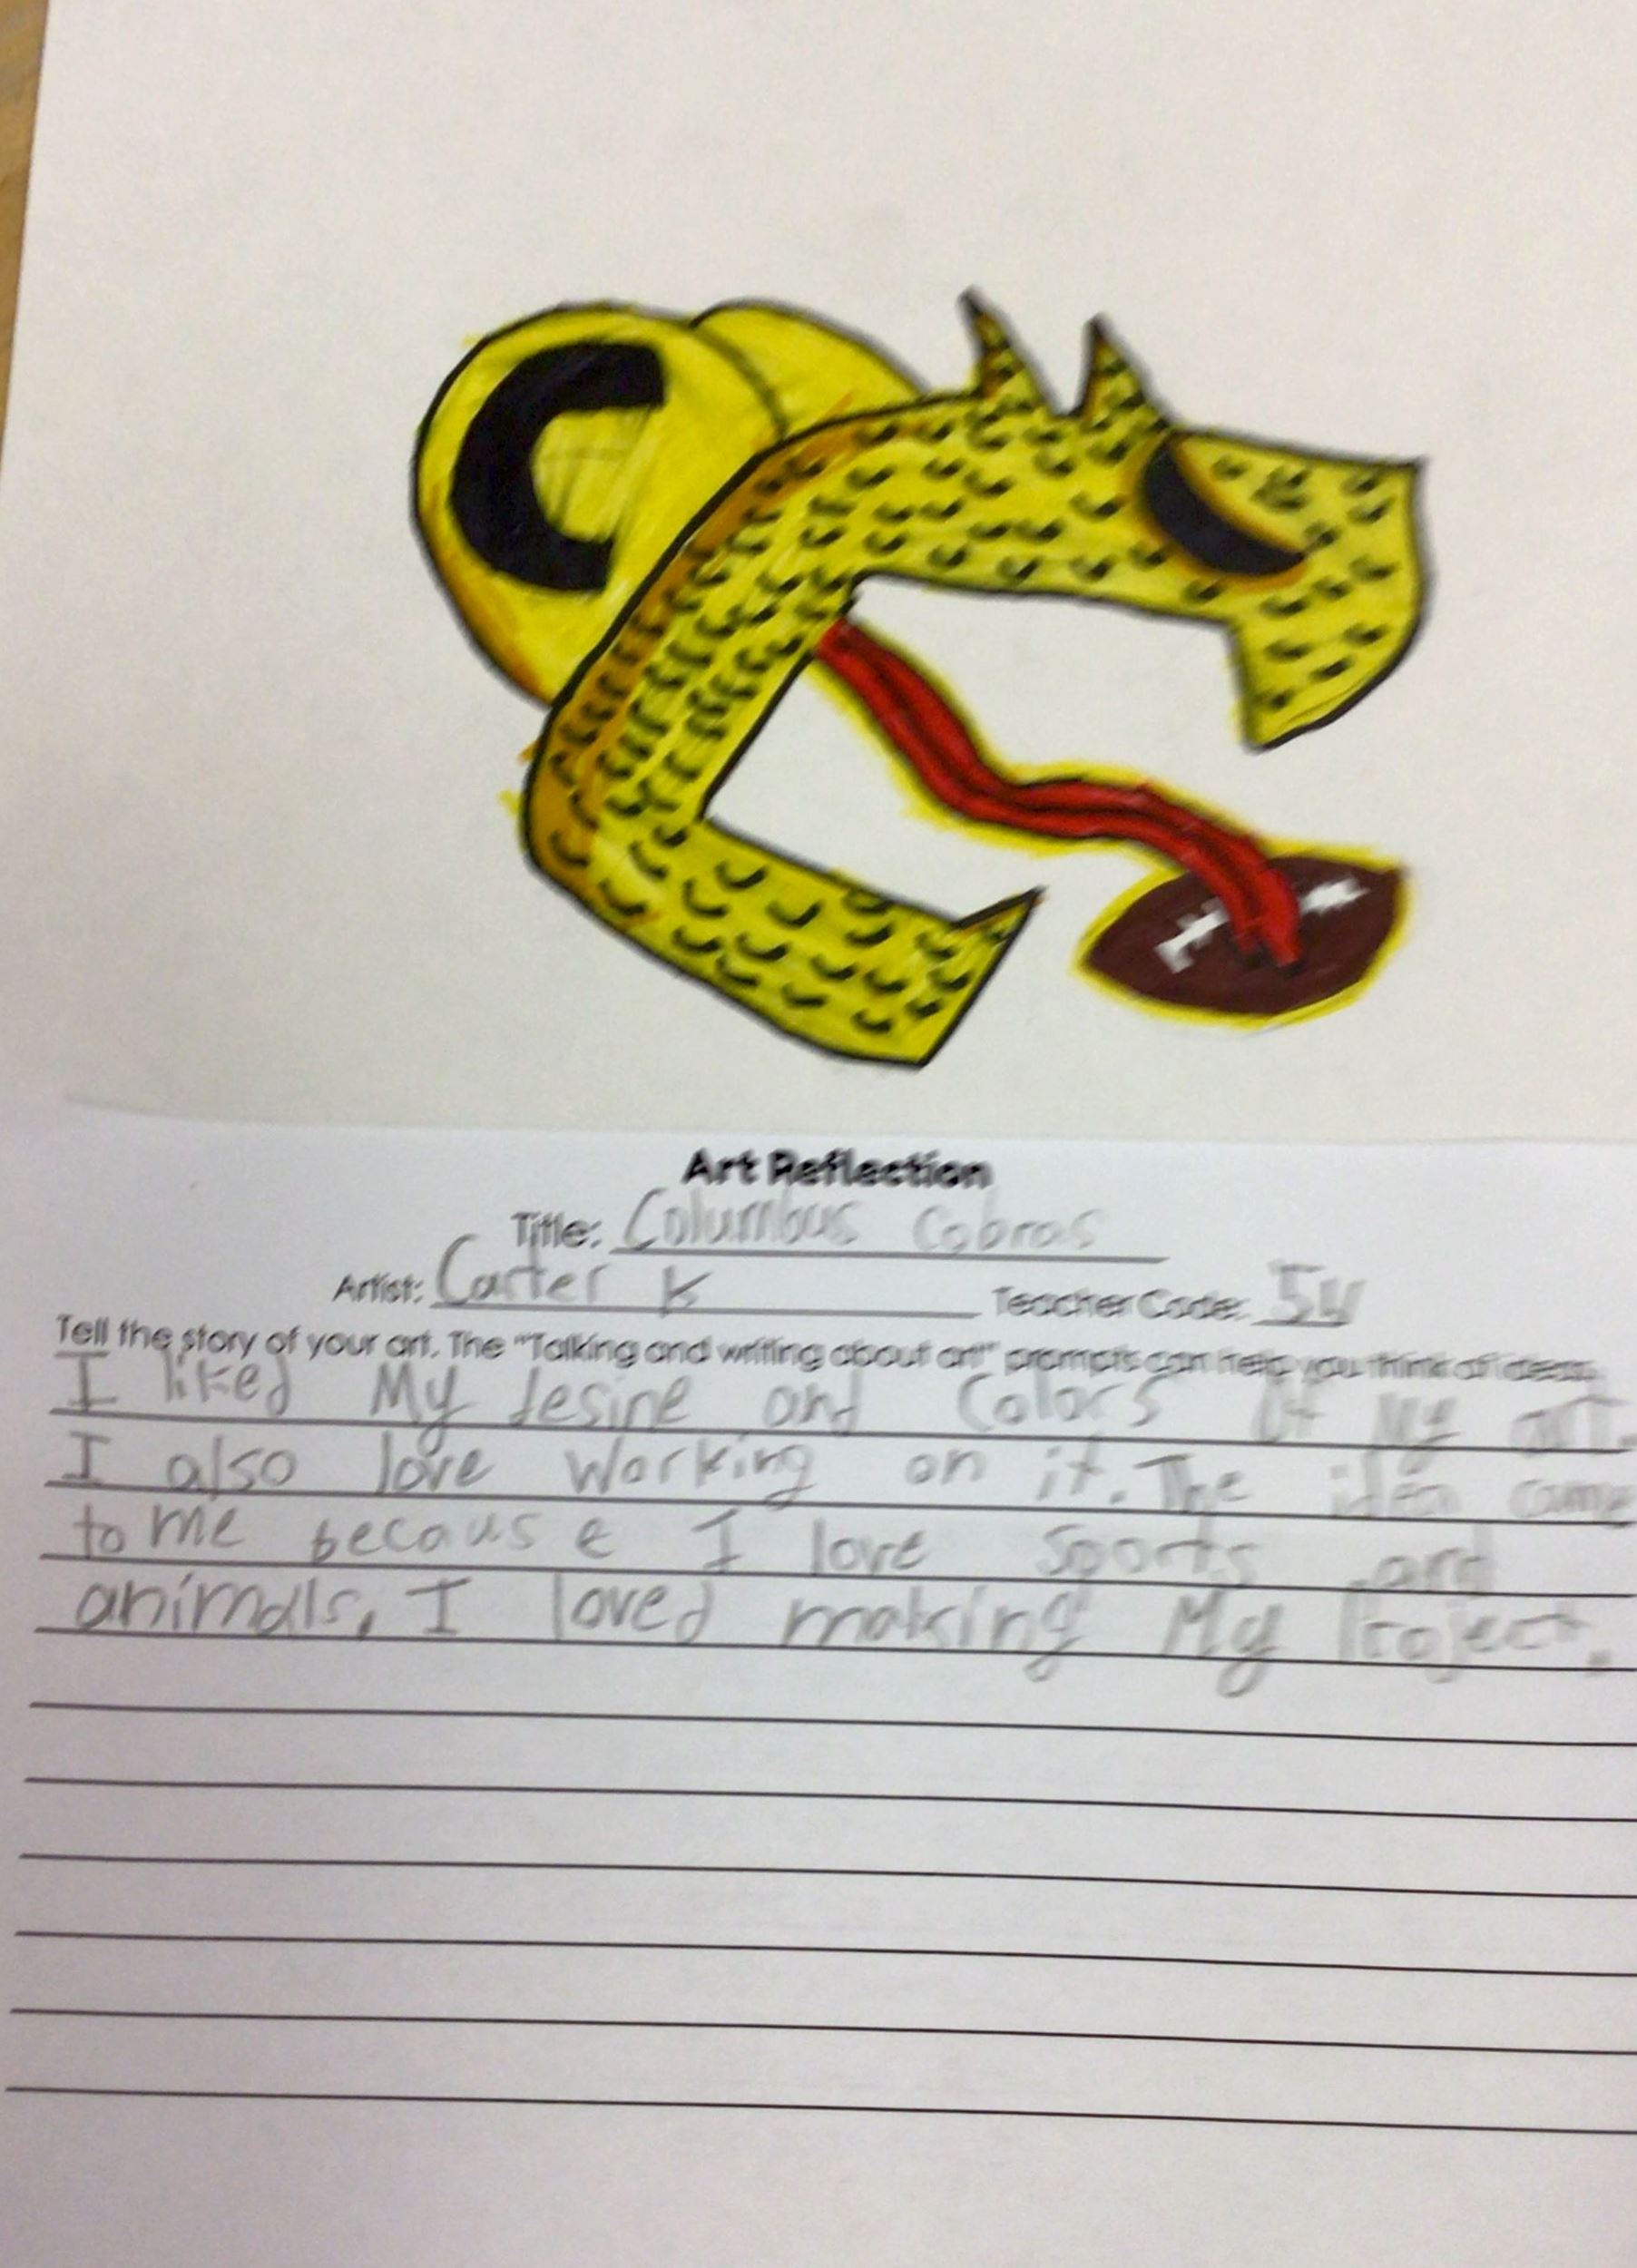 C
Art Reflection
Title: Columbus Cobras
Artist: Carter K Teacher Code:
Tell the story of your art. The "Talking and writing about art" prompts can help you think of ideas.
I liked My desine and Colors of My art.
I also love working on it. The idea came
to me because I love Sports and
animals. I loved making My Project.